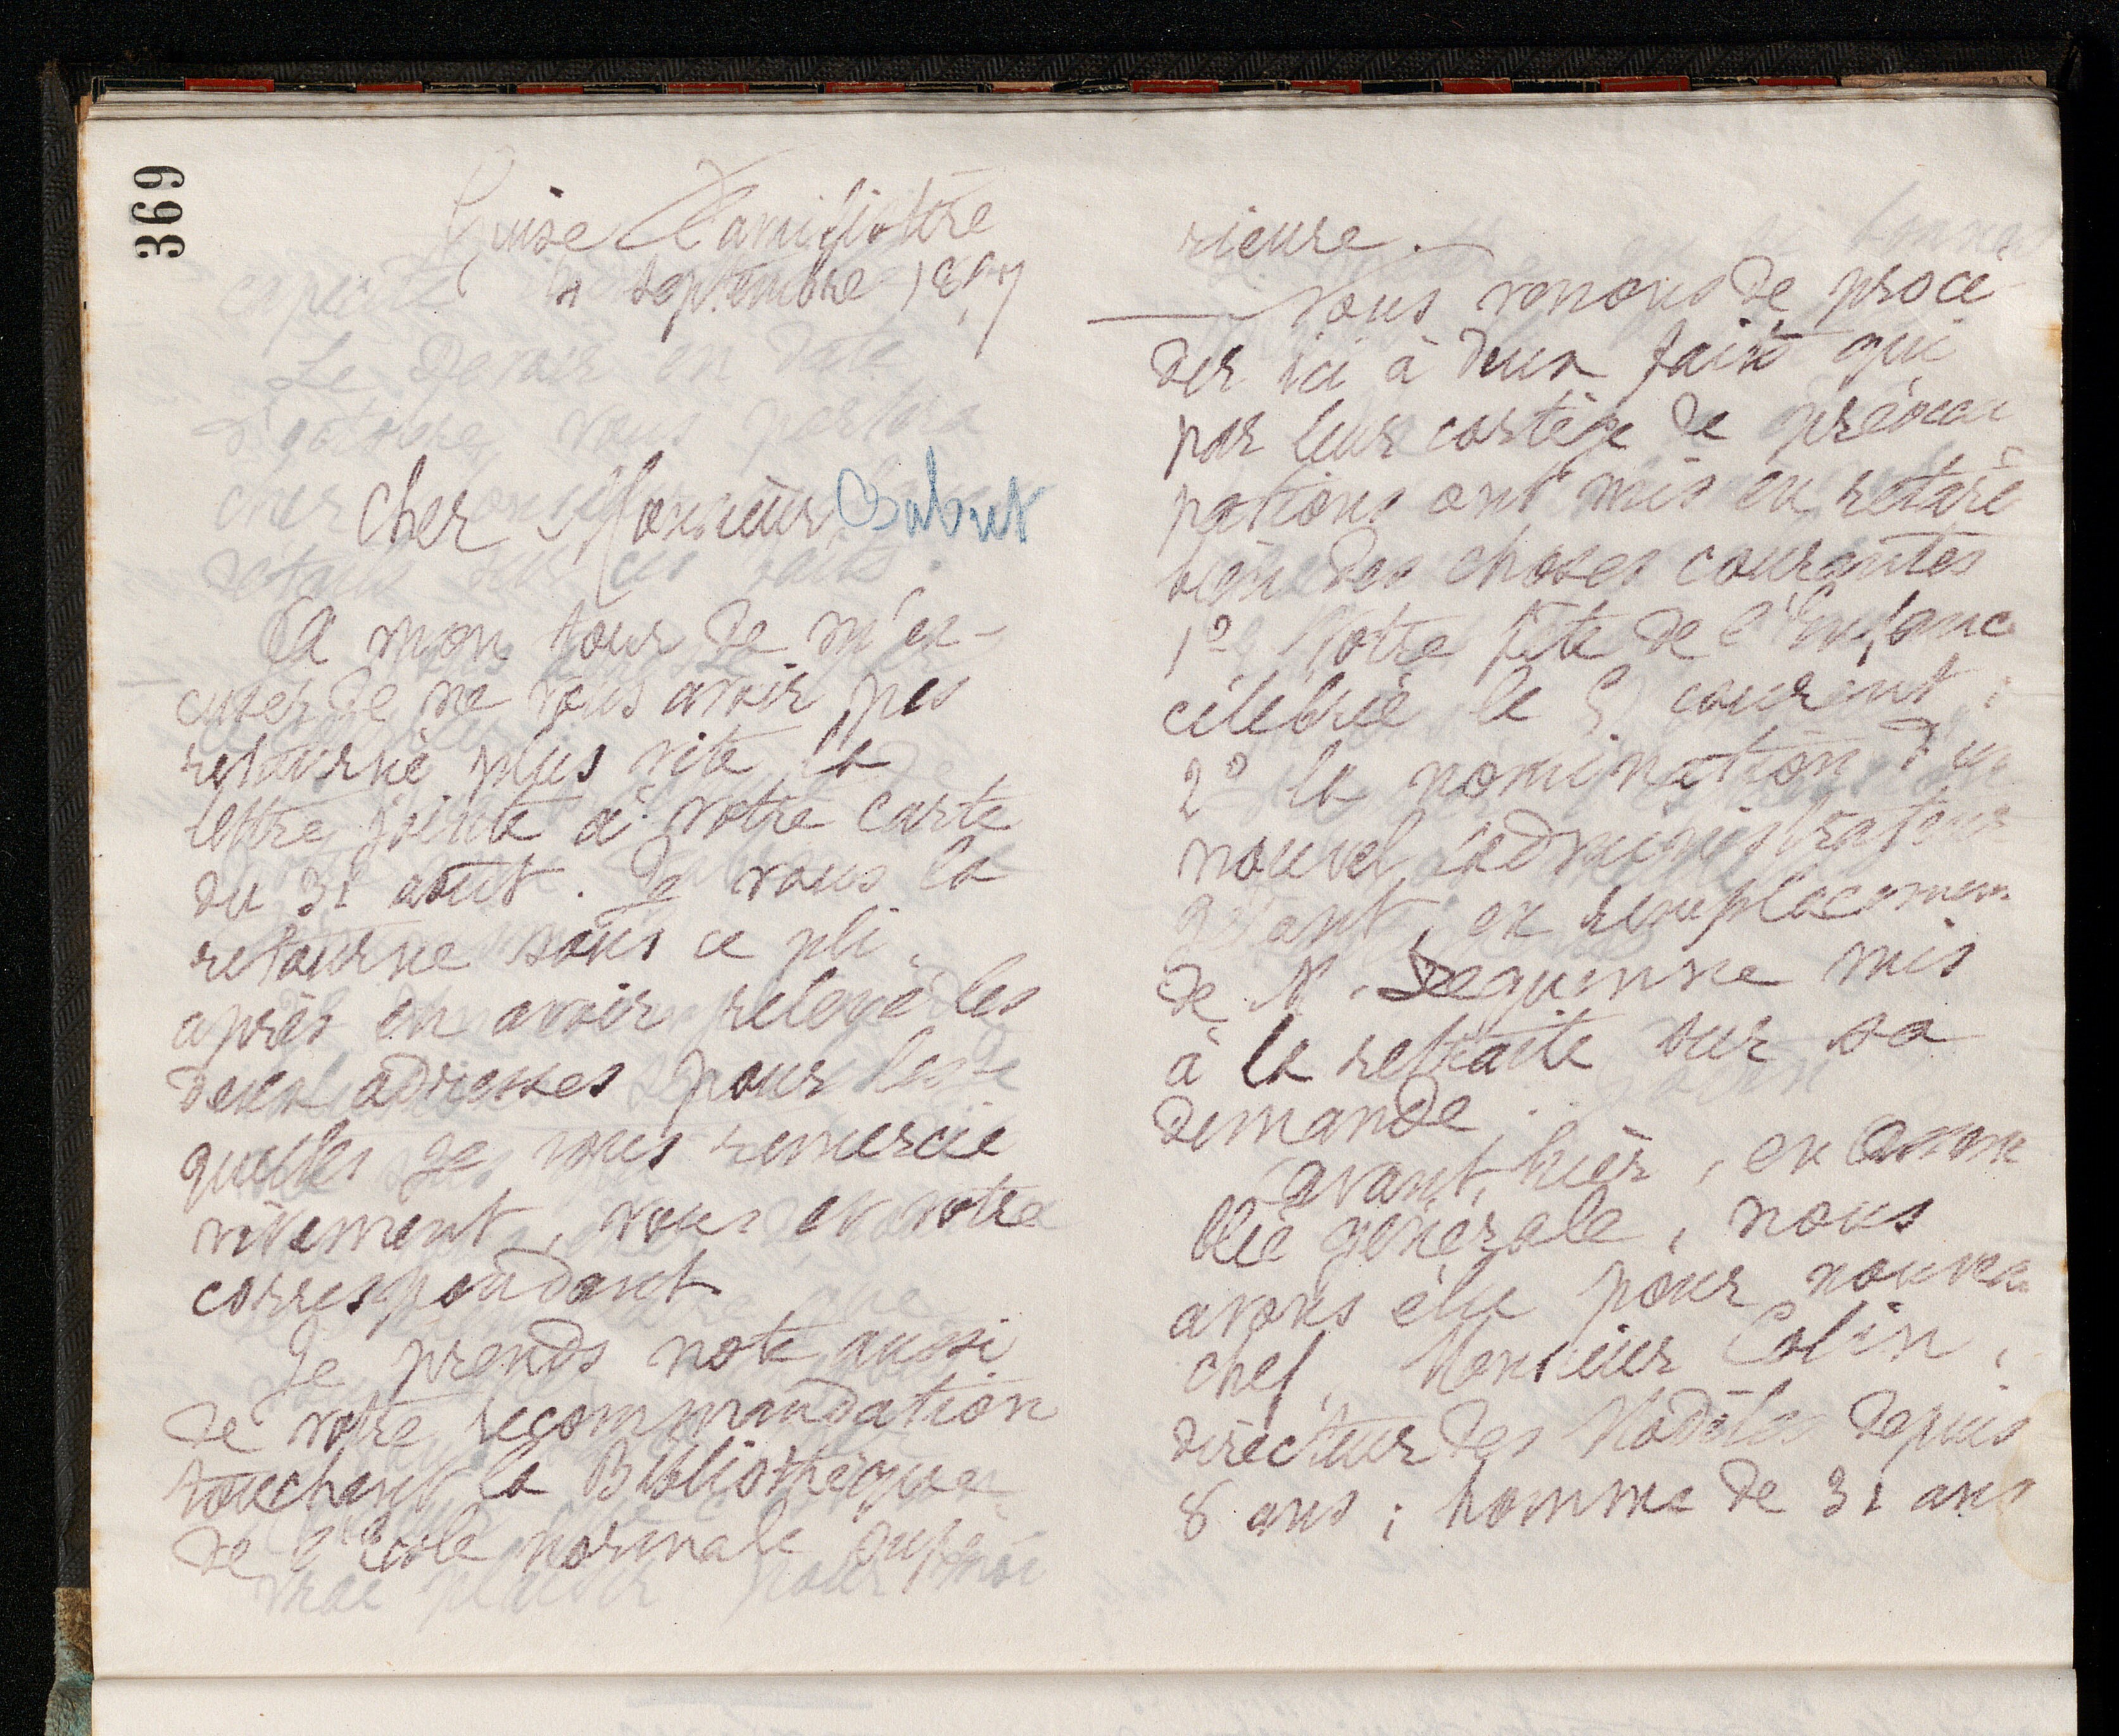 369
Guise Familistère
septembre 1897
Cher Monsieur Babut
A mon tour de m'ex-
cuser de ne vous avoir pas
retourné plus vite la
lettre jointe à votre carte
du 31 août. Je vous la
retourne sous ce pli,
après en avoir relevé les
deux adresses pour les-
quelles je vous remercie
vivement, vous et votre
correspondant.
Je prends note aussi
de votre recommandation
touchant la Bibliothèque
de l'École normale supé-
rieure.
Nous venons de procé-
der ici à deux faits qui
par leur cortège de préoccu
pations ont mis en retard
bien des choses courantes
1º Notre fête de l'Enfance
célébrée le 5 courant ;
2º la nomination d'un
nouvel administrateur
gérant, en remplacement
de M. Dequenne mis
à la retraite sur sa
demande.
Avant, hier, en assem
blée générale, nous
avons élu pour nouveau
chef, Monsieur Colin,
directeur des Modèles depuis
8 ans ; homme de 31 ans